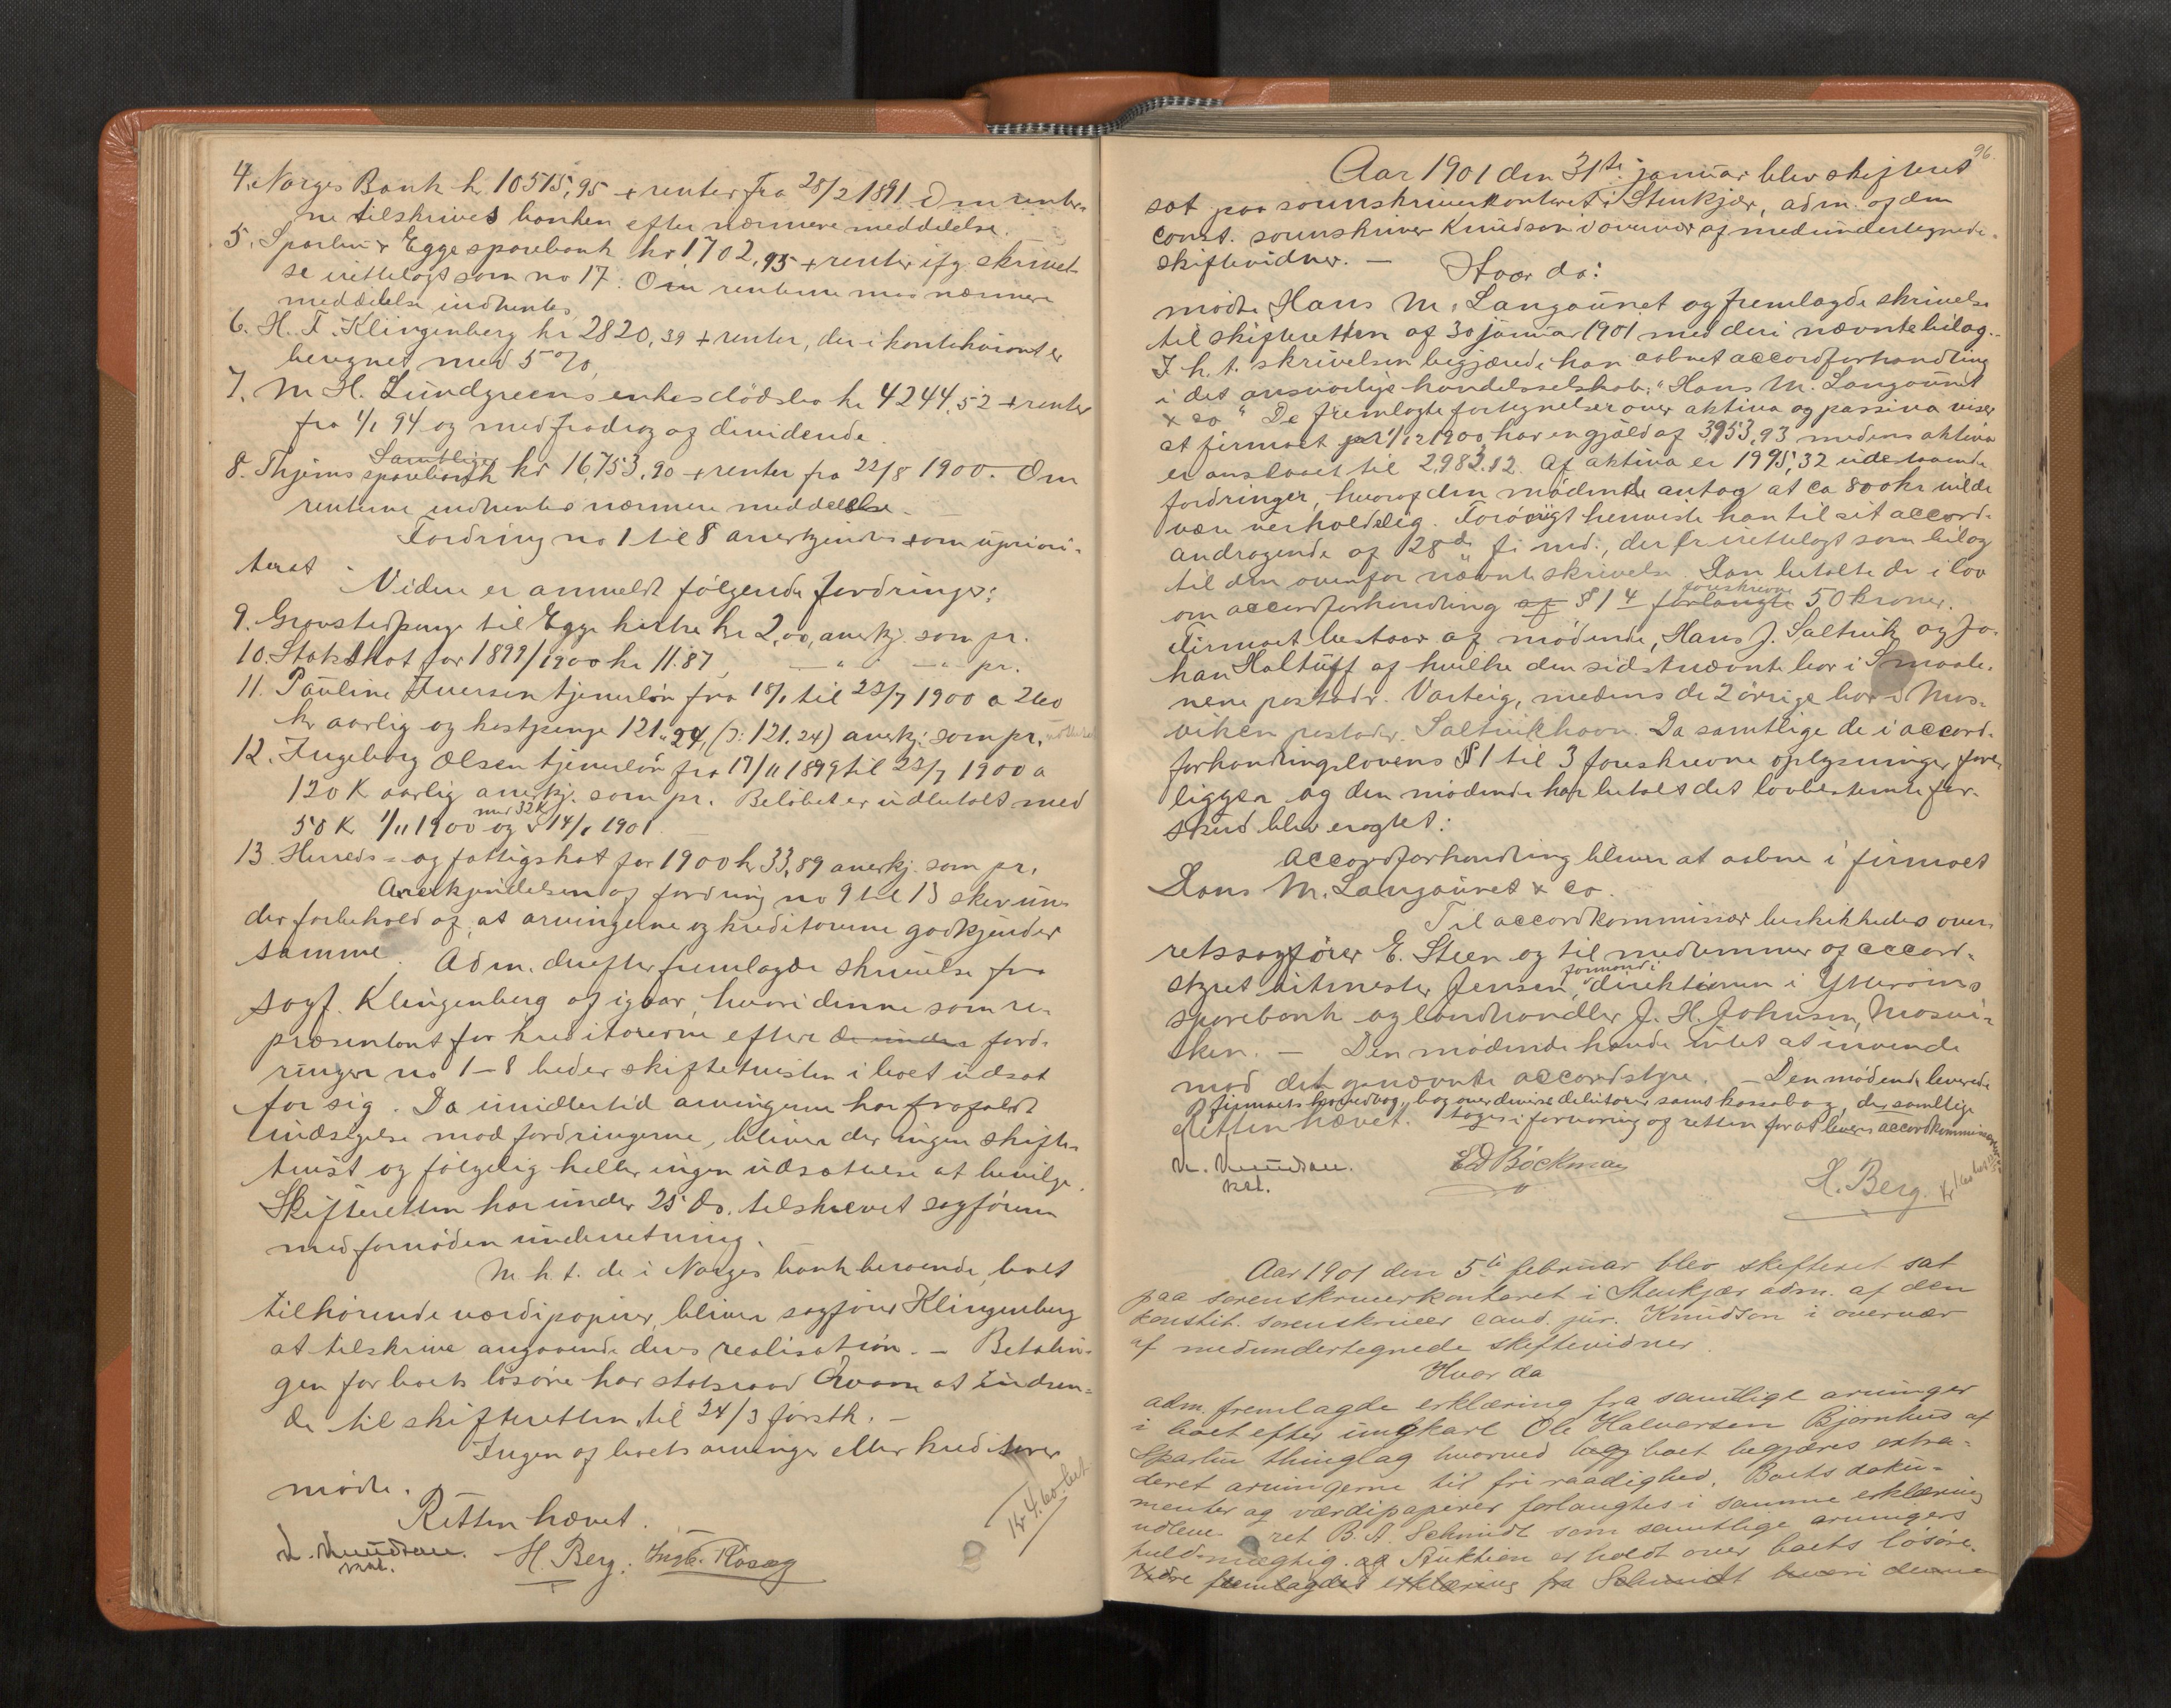 4. Norges Bank kr. 10515,95 + renter fra 28/2 1891. Om renter-
ne tilskrives banken efter nærmere meddelelse.
5. Sparbu & Egge sparebank kr 1702,95 + renter ifg. skrivel-
se irettelagt som no 17. Om renterne maa nærmere
meddelelse indhentes
6. H. F. Klingenberg kr 2820,39 + renter, der i kontokurant er
beregnet med 5 %,
7. M H. Lundgreens enkes dødsbo kr 4244,52 + renter
fra 1/1 94 og med fradrag og dividende.
Samtlige
8. Thjems sparebank kr 16,753,90 + renter fra 22/8 1900. Om
renterne indhentes nærmere meddelelse.
Fordring no 1 til 8 anerkjendes som upriori-
teret
Videre er anmeldt følgende fordringer:
9. Gravstedpenge til Egge kirke kr 2,00, anerkj. som pr.
10. Statsskat for 1899/1900 kr 11.87, — " — " pr.
11. Pauline Iversen tjenerløn fra 18/1 til 22/7 1900 a 260
kr aarlig og kostpenge 121,24, (ɔ: 121.24) anerkj. som pr.
12. Ingeborg Olsen tjenerløn fra 17/11 1899 til 22/7 1900 a
120 K aarlig anerkj. som pr. Beløbet er udbetalt med
med 32 K
50 K 1/11 1900 og 14/1 1901.
13. Herreds- og fattigskat for 1900 kr 33,89 anerkj. som pr.
Anerkjendelsen af fordring no 9 til 13 sker un-
der forbehold af, at arvingerne og kreditorerne godkjender
samme.
Adm. derefter fremlagde skrivelse fra
sagf. Klingenberg af igaar, hvori denne som re-
præsentant for kreditorerne efter de under ford-
ringer no 1-8 beder skiftetvisten i boet udsat
for sig. Da imidlertid arvingerne har frafaldt
indsigelse mod fordringerne, bliver der ingen skifte-
tvist og følgelig heller ingen udsættelse at bevilge.
Skifteretten har under 25 ds. tilskrevet sagføreren
med fornøden underretning.
M. h. t. de i Norges bank beroende, boet
tilhørende værdipapirer, bliver sagfører Klingenberg
at tilskrive angaaende deres realisation. – Betalin-
gen for boets løsøre har statsraad Qvam at indsen-
de til skifteretten til 24/3 førstk. –
Ingen af boets arvinger eller kreditorer
mødte.
Retten hævet.
K. Knudsen. H. Berg. Ingb. Rosæg
kst.
Kr 4.60. bet.
96.
Aar 1901 den 31te januar blev skifteret
sat paa sorenskriverkontoret i Stenkjær, adm. af den
const. sorenskriver Knudson i overvær af medundertegnede
skiftevidner. —
Hvor da:
mødte Hans M. Langaunet og fremlagde skrivelse
til skifteretten af 30 januar 1901 med deri nævnte bilag.
I h. t. skrivelsen begjærede han aabnet accordforhandling
i det ansvarlige handelsselskab: "Hans M. Langaunet
& co." De fremlagte fortegnelser over aktiva og passiva viser
at firmaet pr 1/12 1900 har en gjæld af 3953,93 medens aktiva
er anslaaet til 2982.12. Af aktiva er 1995,32 udestaaende
fordringer, hvoraf den mødende antog at ca 800 kr vilde
være uerholdelig. Forøvrigt henviste han til sit accord-
andragende af 28de f. md., der er irettelagt som bilag
til den ovenfor nævnte skrivelse. Han betalte de i lov
foreskrevne
om accordforhandling af § 14 forlangte 50 kroner.
Firmaet bestaar af mødende, Hans J. Saltvik og Jo-
han Haltuff af hvilke den sidstnævnte bor i Smaale-
nene postadr. Varteig, medens de 2 øvrige bor i Mos-
viken postadr. Saltvikhavn. Da samtlige de i accord-
forhandlingslovens § 1 til 3 foreskrevne oplysninger fore-
ligger og den mødende har betalt det lovbestemte for-
skud blev eragtet:
Accordforhandling bliver at aabne i firmaet
Hans M. Langaunet & co.
Til accordkommissær beskikkedes over-
retssagfører E. Steen og til medlemmer af accord-
formand i
styret ritmester Jensen, direktionen i Ytterøens
sparebank og landhandler J. H. Johnsen, Mosvi-
ken. — Den mødende havde intet at invende
mod det opnævnte accordstyre. – Den mødende leverede
firmaets hovedbog, bog over diverse debitorer samt kassabog, der samtlige
Retten hævet. toges i forvaring af retten for at leveres accordkommissæren
K. Knudsen. Ed Bøckman H. Berg.
kst.
Aar 1901 den 5te februar blev skifteret sat
paa sorenskriverkontoret i Stenkjær adm. af den
konstit. sorenskriver cand. jur. Knudson i overvær
af medundertegnede skiftevidner.
Hvor da
adm. fremlagde erklæring fra samtlige arvinger
i boet efter ungkarl Ole Halvorsen Bjørnhus af
Sparbu thinglag hvorved boet begjæres extra-
deret arvingerne til fri raadighed. Boets doku-
menter og værdipapirer forlangtes i samme erklæring
udleveret B. A. Schmidt som samtlige arvingers
fuldmægtig. Auktion er holdt over boets løsøre.
Videre fremlagdes erklæring fra Schmidt hvori denne